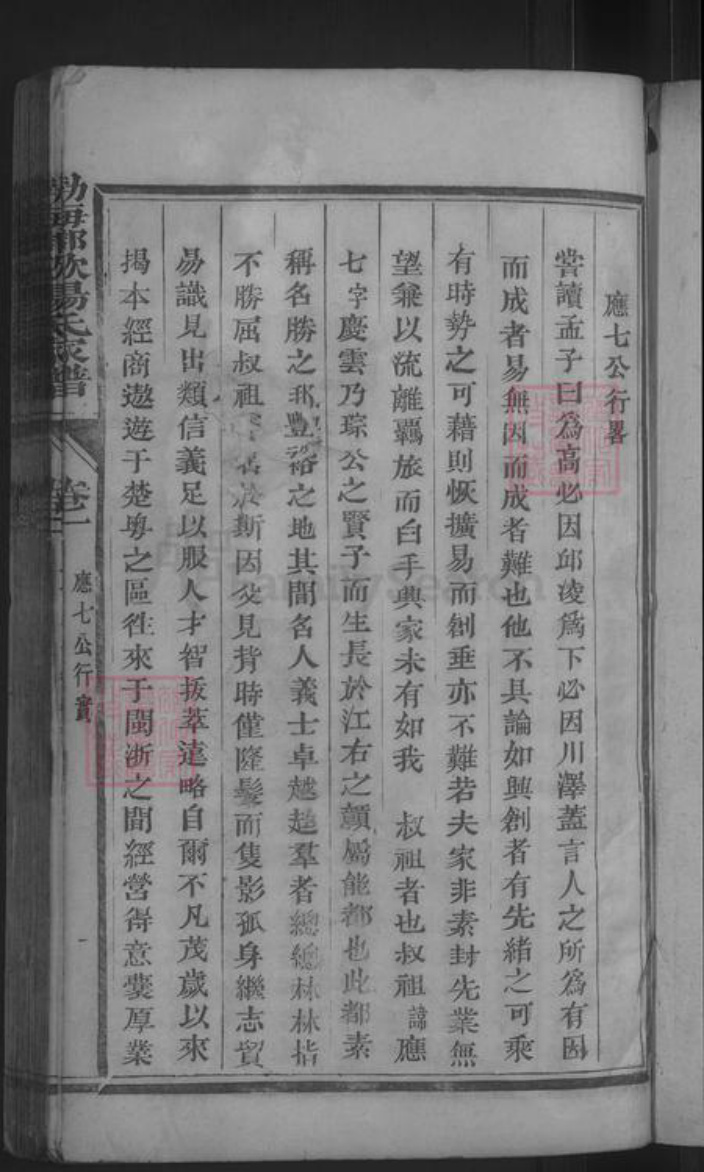 應七公行畧
嘗讀孟子曰爲高必因邱淩爲下必因川澤蓋言人之所爲有因
而成者易無因而成者難也他不具論如興創者有先緒之可乘
有時勢之可藉則恢擴易而創垂亦不難若夫家非素封先業無
望兼以流離羈旅而白手興家未有如我 叔祖者也叔祖諱應
七字慶雲乃琮公之賢子而生長於江右之贛屬能都也此都素
稱名勝之邦豐裕之地其間名人義士卓越超羣者總總林林指
不勝屈叔祖 於斯因父見背時僅隆髮而隻影孤身繼志貿
易識見出類信義足以服人才智拔萃達略自爾不凡茂歲以來
揭本經商遨遊于楚粤之區徃來于閩浙之間經營得意囊厚業
勃海郡歐陽氏家譜
卷一
應七公行實
一
FamilySearch